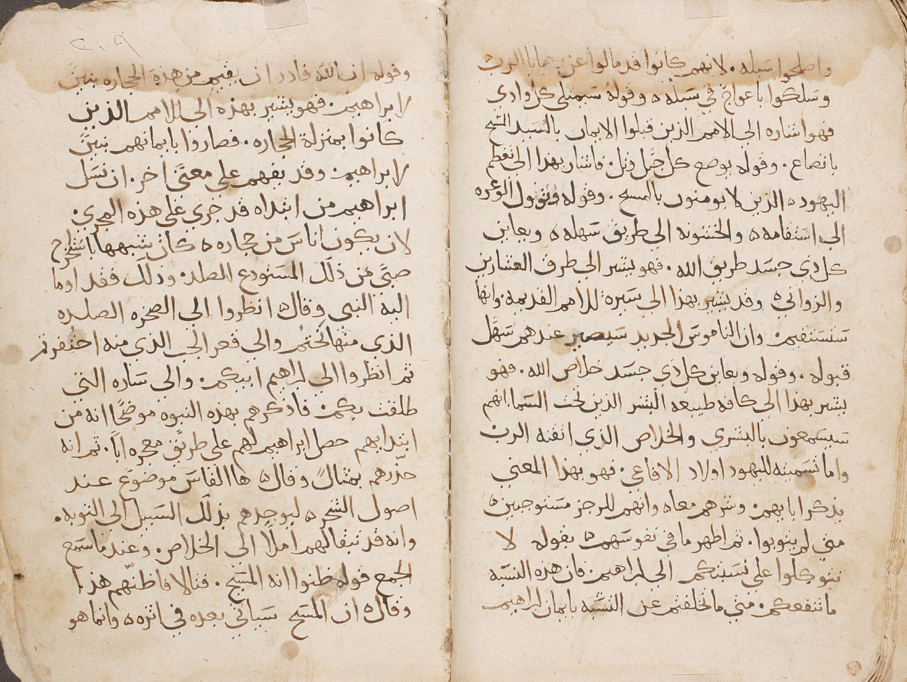 واصلحوا سبله. لانهم كانوا قد مالوا عن وصايا الرب
وسلكوا باعواج في سبله ه وقوله سيمتلى كل وادي
فهو اشاره الى الامم الذين قبلوا الايمان بالسيد المسيح
باتضاع. وقوله يوضع كل جبل وتل. فاشار بهذا الى تعظم
اليهود ه الذين لا يومنون بالمسيح. وقوله وتوول الوعره
الى استقامه ه والخشنه الى طريق سهله ه ويعاين
كل ذي جسد طريق الله. فهو يشير الى طرق العشارين
والزواني ه وقد يشير بهذا الى سيرة للامم القديمه وانها
ستستقيم. وان الناموس الجديد سيصير عندهم سهل
قبوله. وقوله ويعاين كل ذي جسد خلاص الله. فهو
يشير بهذا الى كافه طبيعه البشر الذين تحت السما انهم
سيسمعون بالبشرى والخلاص الذي اتقنه الرب
واما تسميته لليهود اولاد الافاعي. فهو بهذا المعنى
يذكر ابايهم. وشرهم معاه وانهم للرجز مستوجبين ه
متى لم يتوبوا. ثم اظهر ما في نفوسهم ه بقوله لا
تتوكلوا على نسبتكم الى ابراهيم. فان هذه النسبه
ما تنفعكم. متى ما تخلفتم عن التشبه بايمان ابراهيم
وقوله ان الله قادر ان يقيم من هذه الحجاره بنين
لابراهيم. فهو يشير بهذه الى الامم الذين
كانوا بمنزلة الحجاره. فصاروا بايمانهم بنين
لابراهيم. وقد يفهم على معنى اخر. ان نسل
ابراهيم من ابتداه قد جرى على هذه المجرى.
لان يكون اناس من حجاره ه كان شبهها باستخراج
صبى من ذلك المستودع الصلد. وذلك فقد اوما
اليه النبي وقال ه انظروا الى الصخره الصلده
الذي منها نحتم والى قعر الجب الذي منه احتفرتم
ثم انظروا الى ابراهيم ابيكم. والى ساره التي
طلقت بكم. فادكرهم بهذه النبوه موضحًا انه من
ابتدايهم حصل ابراهيم لهم على طريق معجزه ابًا. ثم انه
حذرهم بمثال وقال ه ها الفاس موضوع عند
اصول الشجره ه ليوجدهم بذلك السبيل الى التوبه.
وانه قد تبقا لهم املا الى الخلاص. وعند ما سمع
الجمع قوله ظنوا انه المسيح. فتالافا ظنهم هذا
وقال ه ان المسيح سياتي بعده في اثره ه وانما هو